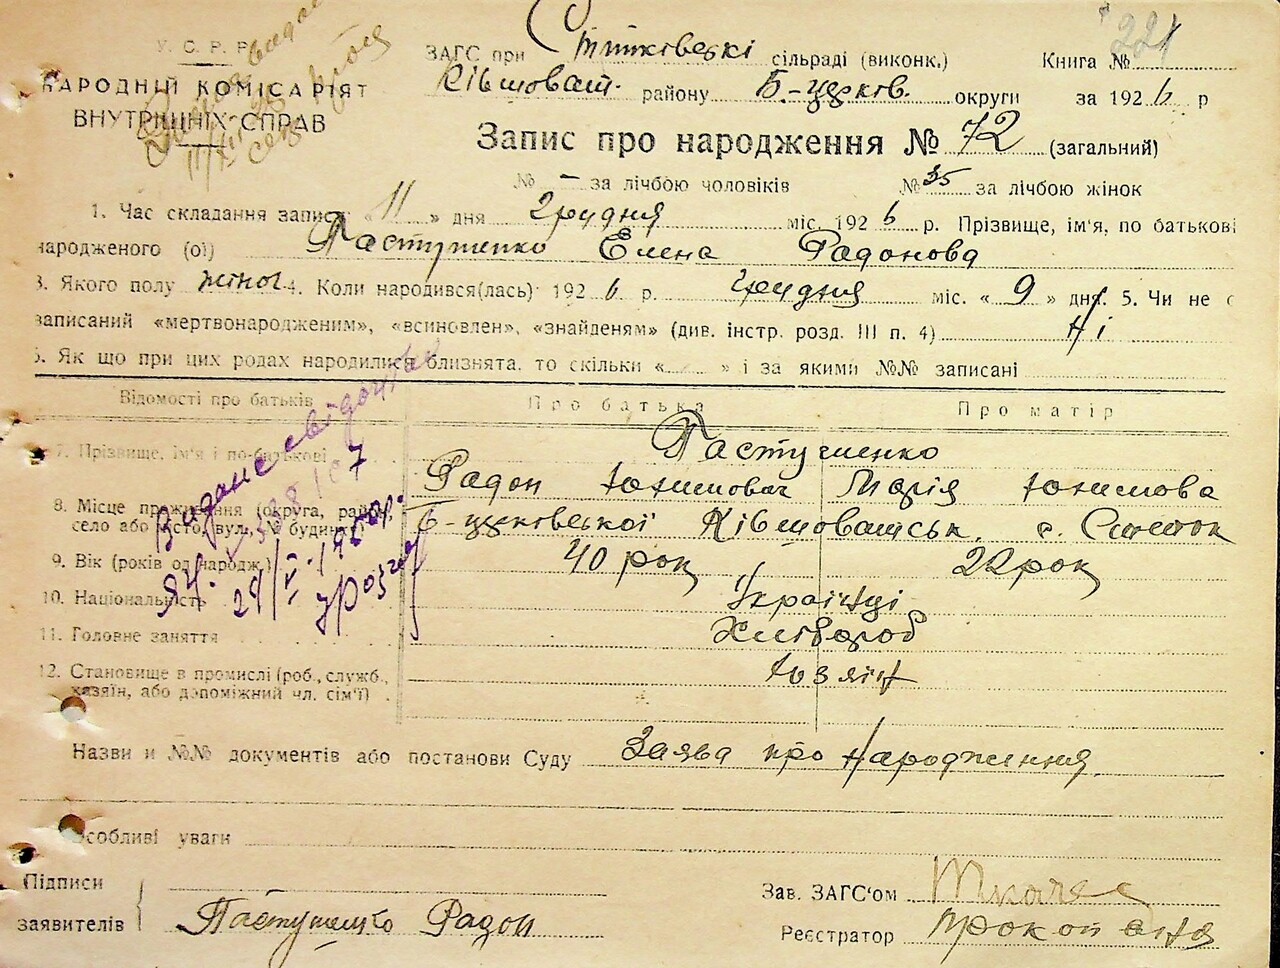 У. С. Р. Р.
НАРОДНІЙ КОМІСАРІЯТ
ВНУТРІШНІХ СПРАВ
221
ЗАГС при сільраді (виконк.) Книга №
Ківшоват. району Б.-церков. округи за 1926 р
Запис про народження № 72 (загальний)
№ – за лічбою чоловіків № 35 за лічбою жінок
1. Час складання запису „11“ дня Грудня міс. 1926 р. Прізвище, ім'я, по батькові
народженого (ої) Пастушенко Елена Радонова
3. Якого полу жіноч 4. Коли народився(лась) 1926 р. грудня міс. «9» дня. 5. Чи не є
записаний «мертвонародженим», «всиновлен», «знайденям» (див. інстр. розд. III п. 4) Ні
6. Як що при цих родах народилися близнята, то скільки « » і за якими №№ записані
Відомості про батьків Про батька Про матір
7. Прізвище, ім'я і по-батькові Пастушенко
Радон Юхимович Марія Юхимова
8. Місце проживання (округа, район,
село або місто, вул., № будинку) Б-церковської Ківшоватськ. с.
9. Вік (років од народж.) 40 рок 22 рок
10. Національність Українці
11. Головне заняття Хлібороб
12. Становище в промислі (роб., служб.,
хазяїн, або допоміжний чл. сім'ї)
Видане свідоцтво
Назви и №№ документів або постанови Суду Заява про народження
Особливі уваги
Підписи
заявителів Пастушенко Радон
Зав. ЗАГС'ом
Реєстратор